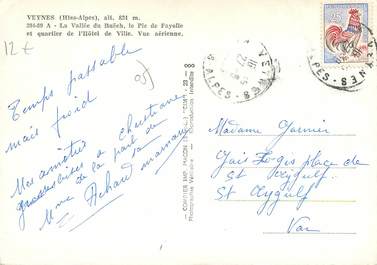 VEYNES (Htes-Alpes), alt. 821 m.
A - La Vallée du Buëch, le Pic de Fayolle
et quartier de l'Hôtel de Ville. Vue aérienne.
12 €
95
Temps passable
mais froid
Mes amitiés à Christiane
grosses bises de
de la part de
Mme Achard maman
COMBIER IMP. MACON
Madame Garnier
Gais Logis place de
St Aygulf
St Aygulf
Var